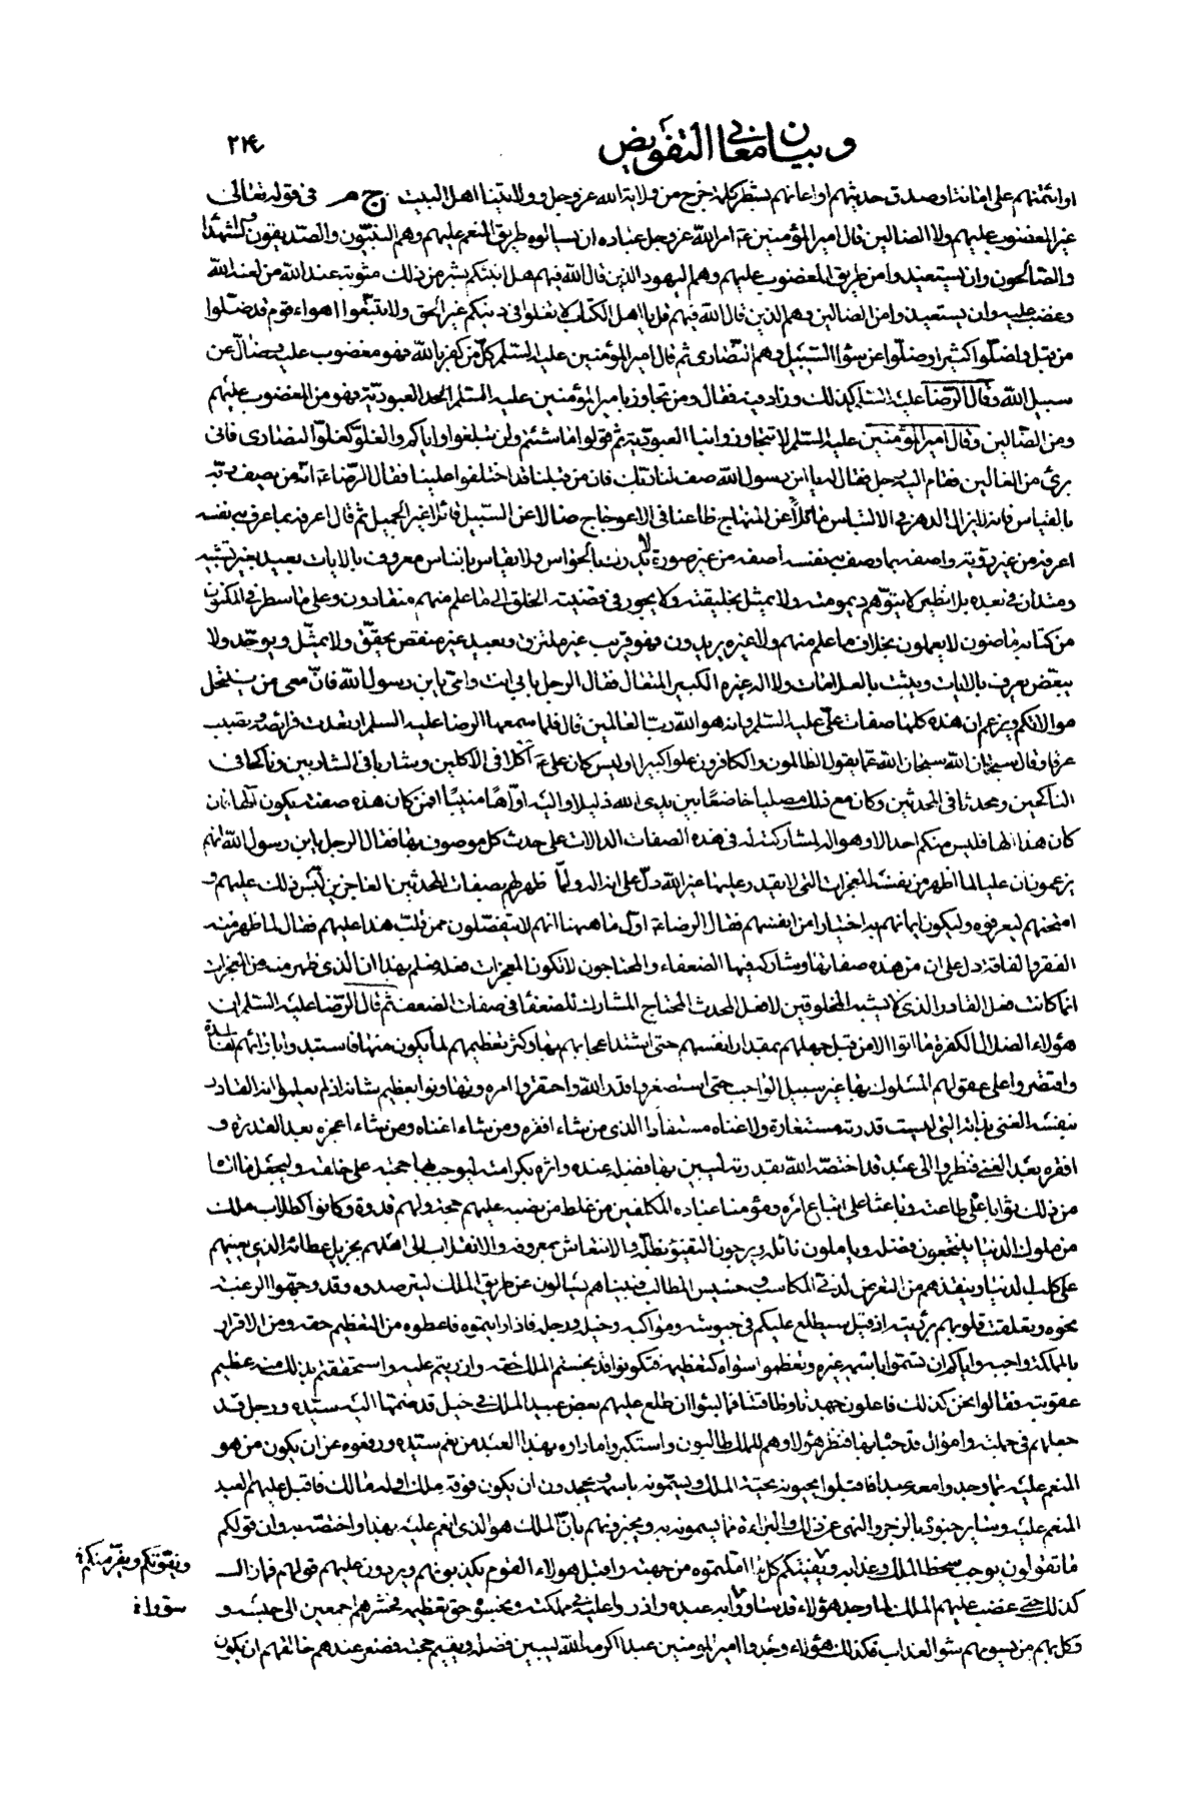 وبيان معاني التفويض
٢١٤
او ائتمنهم على امانة او صدق حديثهم او اعانهم بشطر كلمة خرج من ولاية الله عز وجل وولايتنا اهل البيت ج م في قوله تعالى
غير المغضوب عليهم ولا الضالين قال امير المؤمنين ع امر الله عز وجل عباده ان يسالوه طريق المنعم عليهم وهم النبيون والصديقون والشهداء
والصالحون وان يستعيذوا من طريق المغضوب عليهم وهم اليهود الذين قال الله فيهم هل انبئكم بشر من ذلك مثوبة عند الله من لعنه الله
وغضب عليه وان يستعيذوا من الضالين وهم الذين قال الله فيهم قل يا اهل الكتاب لا تغلوا في دينكم غير الحق ولا تتبعوا اهواء قوم قد ضلوا
من قبل واضلوا كثيرا وضلوا عن سواء السبيل وهم النصارى ثم قال امير المؤمنين عليه السلم كل من كفر بالله فهو مغضوب عليه وضال عن
سبيل الله وقال الرضا عليه السلم كذلك وزاد فيه فقال ومن تجاوز بامير المؤمنين عليه السلم الحد العبودية فهو من المغضوب عليهم
ومن الضالين وقال امير المؤمنين عليه السلم لا تتجاوزوا بنا العبودية ثم قولوا ما شئتم ولن تبلغوا واياكم والغلو كغلو النصارى فاني
برئ من الغالين فقام اليه رجل فقال له يا ابن رسول الله صف لنا ربك فان من قبلنا قد اختلفوا علينا فقال الرضا ع انه من يصف ربه
بالقياس فانه لا يزال الدهر في الالتباس مائلا عن المنهاج ظاعنا في الاعوجاج ضالا عن السبيل قائلا غير الجميل ثم قال اعرفه بما عرف به نفسه
اعرفه من غير رؤية واصفه بما وصف به نفسه اصفه من غير صورة لا يدرك بالحواس ولا يقاس بالناس معروف بالايات بعيد بغير تشبيه
ومتدان في بعده بلا نظير لا يتوهم ديمومته ولا يمثل بخليقته ولا يجور في قضيته الخلق الى ما علم منهم منقادون وعلى ما سطر في المكنون
من كتابه ماضون لا يعملون بخلاف ما علم منهم ولا غيره يريدون فهو قريب غير ملتزق وبعيد غير متقص يحقق ولا يمثل ويوحد ولا
يبعض يعرف بالايات ويثبت بالعلامات ولا اله غيره الكبير المتعال فقال الرجل بابي انت وامي يا بن رسول الله فان معي من ينتحل
موالاتكم ويزعم ان هذه كلها صفات علي عليه السلم وانه هو الله رب العالمين قال فلما سمعها الرضا عليه السلم ارتعدت فرائصه وتصبب
عرقا وقال سبحان الله سبحان الله عما يقول الظالمون والكافرون علوا كبيرا اوليس كان علي ع اكلا في الاكلين وشاربا في الشاربين وناكحا في
الناكحين ومحدثا في المحدثين وكان مع ذلك مصليا خاضعا بين يدي الله ذليلا واليه اواها منيبا افمن كان هذه صفته يكون الها فان
كان هذا الها فليس منكم احد الا وهو اله لمشاركته له في هذه الصفات الدالات على حدث كل موصوف بها فقال الرجل يا بن رسول الله انهم
يزعمون ان عليا لما اظهر من نفسه المعجزات التي لا يقدر عليها غير الله دل على انه اله ولما ظهر لهم بصفات المحدثين العاجزين لبس ذلك عليهم و
امتحنهم ليعرفوه وليكون ايمانهم به اختيارا من انفسهم فقال الرضا ع اول ما ههنا انهم لا ينفصلون ممن قلب هذا عليهم فقال لما ظهر منه
الفقر والفاقة دل على ان من هذه صفاته وشاركه فيها الضعفاء والمحتاجون لا تكون المعجزات فعله فعلم بهذا ان الذي ظهر منه من المعجزات
انما كانت فعل القادر الذي لا يشبه المخلوقين لا فعل المحدث المحتاج المشارك للضعفاء في صفات الضعف ثم قال الرضا عليه السلم ان
هؤلاء الضلال الكفرة ما اتوا الا من قبل جهلهم بمقدار انفسهم حتى اشتد اعجابهم بها وكثر تعظيمهم لما يكون منها فاستبدوا بارائهم الفاسدة
واقتصروا على عقولهم المسلوك بها غير سبيل الواجب حتى استصغروا قدر الله واحتقروا امره وتهاونوا بعظيم شانه اذ لم يعلموا انه القادر
بنفسه الغني بذاته التي ليست قدرته مستعارة ولا غناه مستفادا الذي من شاء افقره ومن شاء اغناه ومن شاء اعجزه بعد القدرة و
افقره بعد الغنى فنظروا الى عبد قد اختصه الله بقدرته ليبين بها فضله عنده واثره بكرامته ليوجب بها حجته على خلقه وليجعل ما اتاه
من ذلك ثوابا على طاعته وباعثا على اتباع امره ومؤمنا عباده المكلفين من غلط من نصبه عليهم حجة ولهم قدوة وكانوا كطلاب ملك
من ملوك الدنيا ينتجعون فضله وياملون نائله ويرجون التفيؤ بظله والانتعاش بمعروفه والانقلاب الى اهلهم بجزيل عطائه الذي يعينهم
على كلب الدنيا وينقذهم من التعرض لدني المكاسب وخسيس المطالب فبيناهم يسالون عن طريق الملك ليترصدوه وقد وجهوا الرغبة
نحوه وتعلقت قلوبهم برؤيته اذ قيل سيطلع عليكم في جيوشه ومواكبه وخيله ورجله فاذا رايتموه فاعطوه من التعظيم حقه ومن الاقرار
بالمملكة واجبه واياكم ان تسموا باسمه غيره وتعظموا سواه كتعظيمه فتكونوا قد بخستم الملك حقه وازريتم عليه واستحققتم بذلك منه عظيم
عقوبته فقالوا نحن كذلك فاعلون جهدنا وطاقتنا فما لبثوا ان طلع عليهم بعض عبيد الملك في خيل قد ضمها اليه سيده ورجل قد
جعلهم في جملته واموال قد حباه بها فنظر هؤلاء وهم للملك طالبون واستكبروا ما راوه بهذا العبد من نعم سيده ورفعوه عن ان يكون من هو
المنعم عليه بما وجدوا معه عبدا فاقبلوا يحيونه بتحية الملك ويسمونه باسمه ويجحدون ان يكون فوقه ملك او له مالك فاقبل عليهم العبد
المنعم عليه وسائر جنوده بالزجر والنهي عن ذلك والبراءة مما يسمونه به ويخبرونهم بان الملك هو الذي انعم عليه بهذا واختصه به وان قولكم
ما تقولون يوجب سخط الملك وعذابه ويفيتكم كل ما املتموه من جهته واقبل هؤلاء القوم يكذبونهم ويردون عليهم قولهم فما زال
كذلك حتى غضب عليهم الملك لما وجد هؤلاء قد ساووا به عبده وازروا عليه في مملكته وبخسوه حق تعظيمه فحشرهم اجمعين الى حبسه و
وكل بهم من يسومهم سوء العذاب فكذلك هؤلاء وجدوا امير المؤمنين عبدا اكرمه الله ليبين فضله ويقيم حجته فصغر عندهم خالقهم ان يكون
ويفوتكم ويفر منكم
سووا